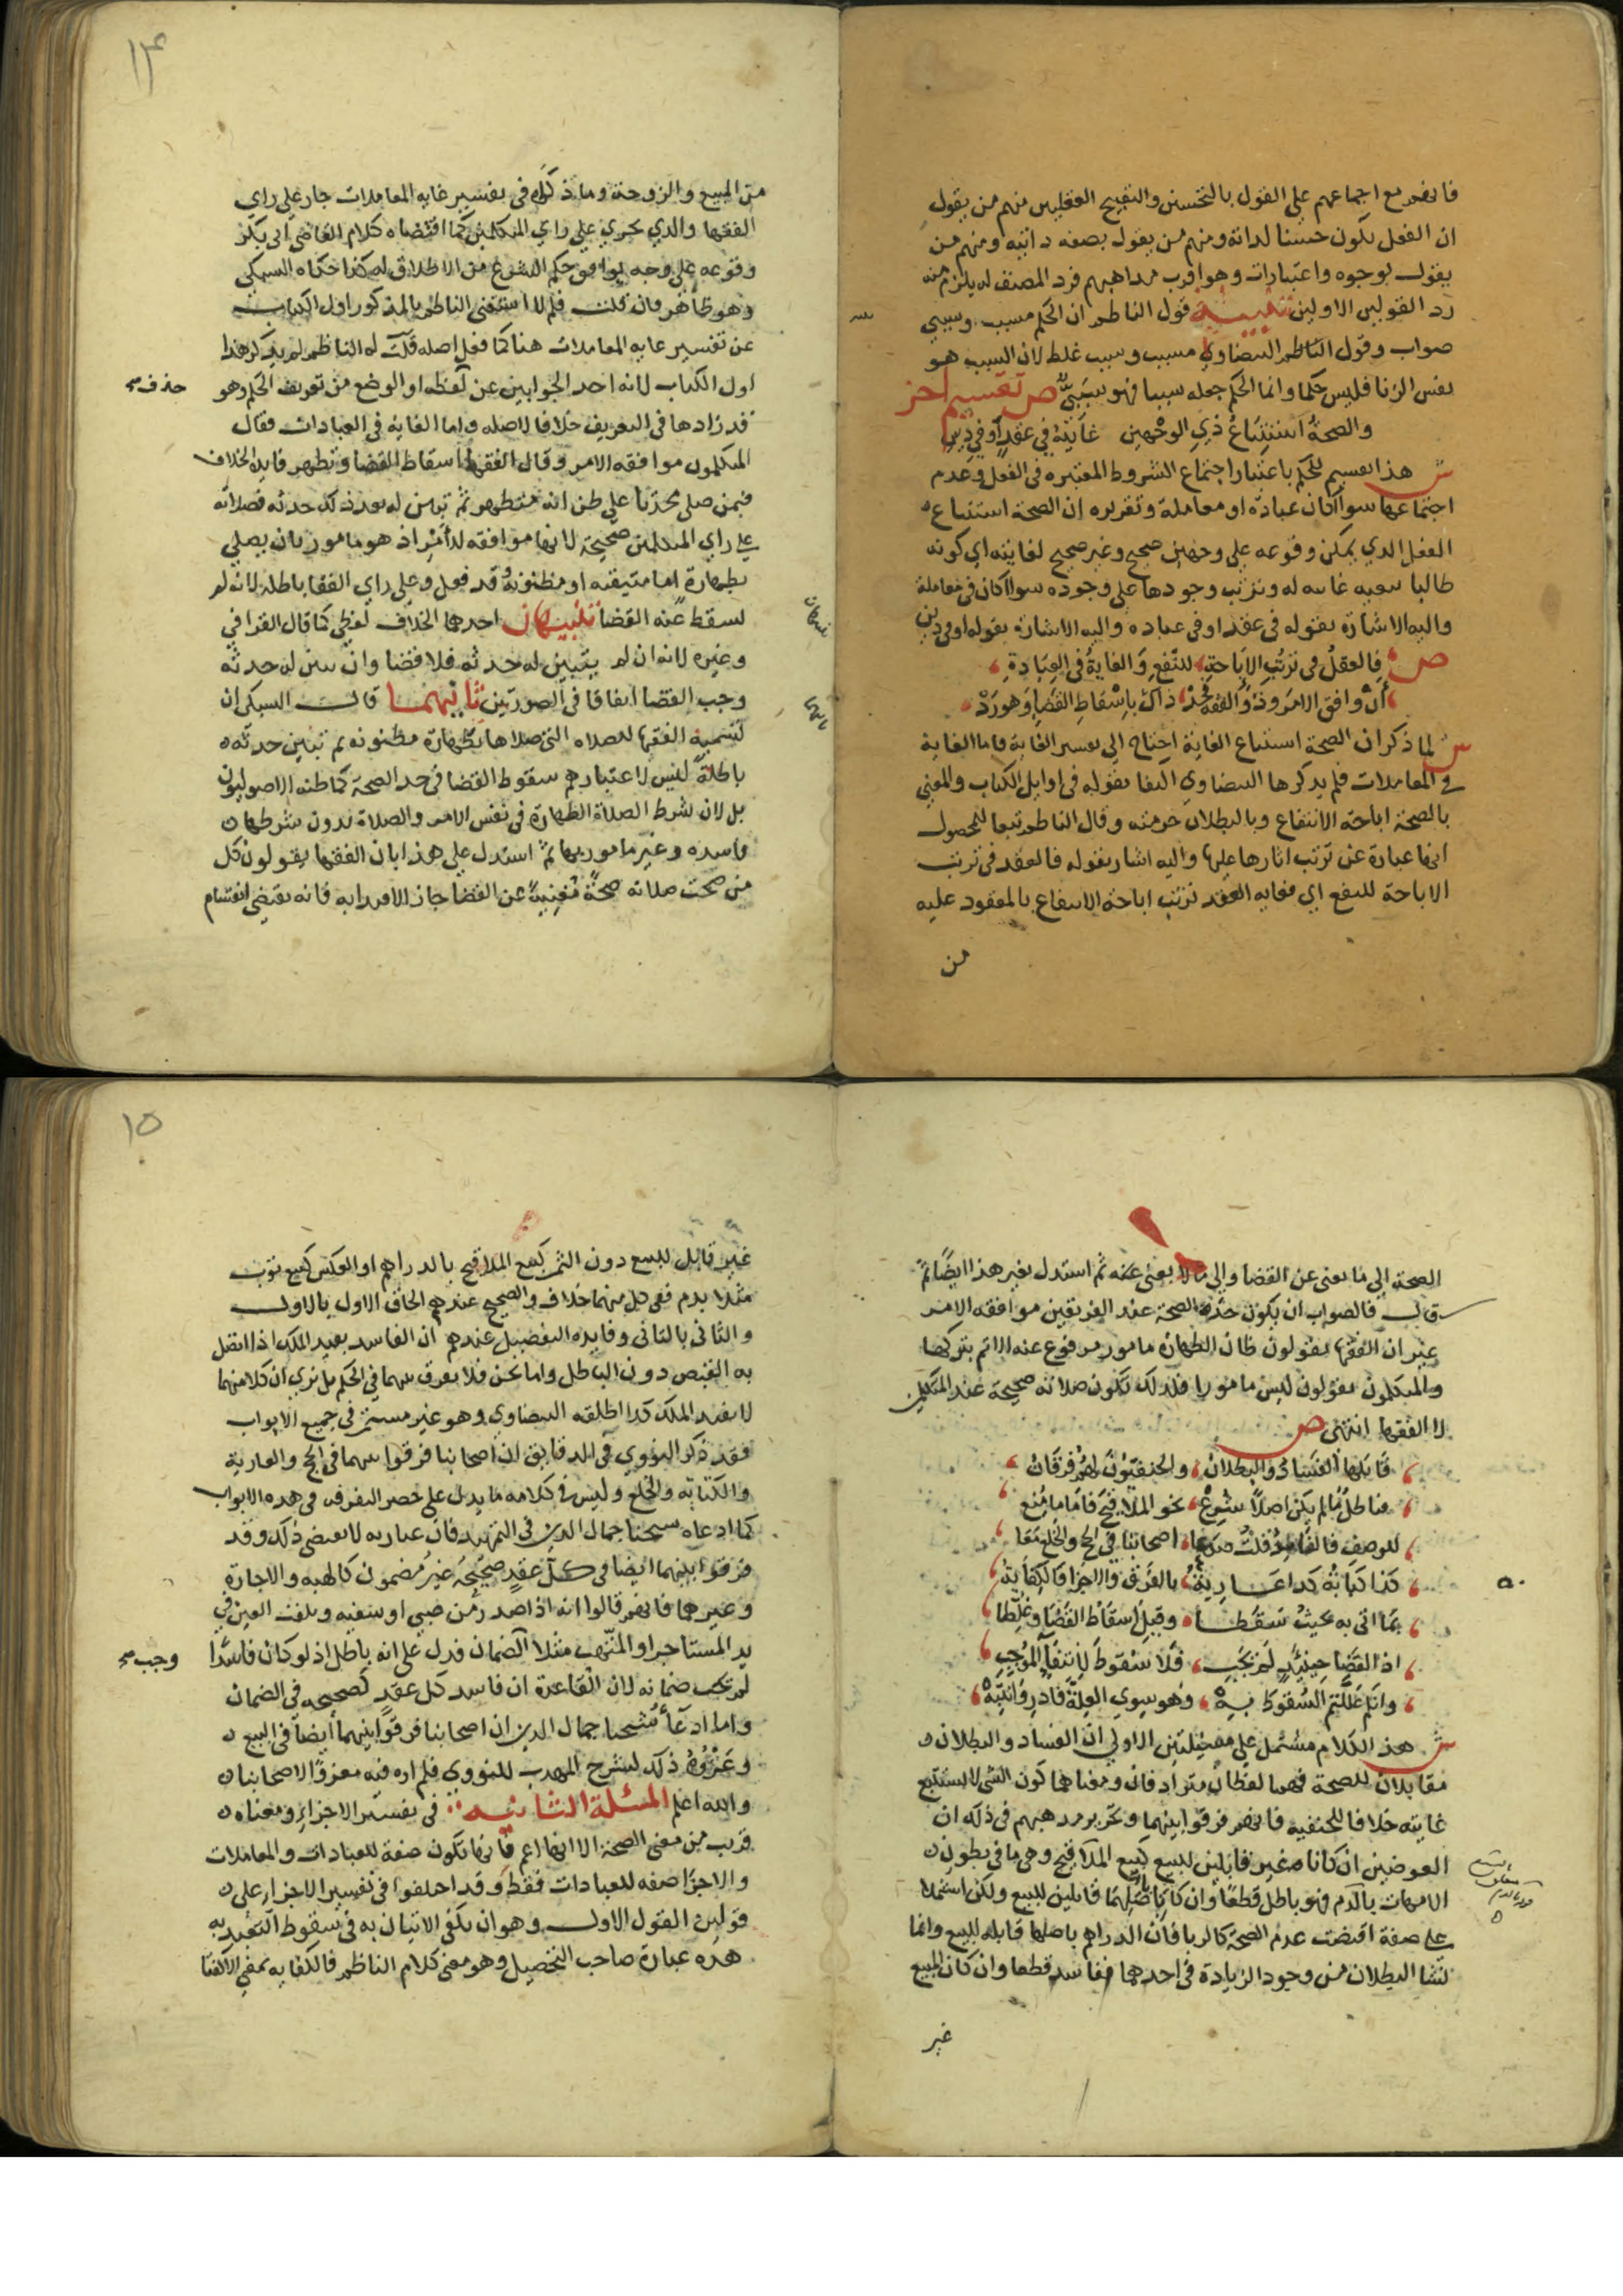 فانهم مع اجماعهم على القول بالتحسين والتقبيح العقليين منهم من يقول
ان الفعل يكون حسنا لذاته ومنهم من يقول بصفه ذاتيه ومنهم من
يقول لوجوه واعتبارات وهو اقرب مذاهبهم فرد المصنف له يلزم منه
رد القولين الاولين تنبيه قول الناظم ان الحكم مسبب وسببي
صواب وقول الناظم البيضاوي مسبب وسبب غلط لان السبب هو
نفس الزنا فليس حكما وانما الحكم جعله سببا فهو سببي ص تقسيم اخر
والصحة استتباع ذي الوجهين غايته في عقد او في دين
ش هذا تقسيم للحكم باعتبار اجتماع الشروط المعتبره في الفعل وعدم
اجتماعها سوا كان عبادة او معاملة وتقريره ان الصحة استتباع
الفعل الذي يمكن وقوعه على وجهين صحيح وغير صحيح لغايته اي كونه
طالبا لتبعيه غايته له وترتب وجودها على وجوده سوا كان في معاملة
واليه الاشارة بقوله في عقد او في عباده واليه الاشارة بقوله او في دين
ص فالعقل في ترتب الاباحة للنفع والغاية في العبادة
ان وافق الامر وذو الفقه يحد ذاك باسقاط القضا وهو رد
ش لما ذكر ان الصحة استتباع الغاية احتاج الى تفسير الغاية فاما الغاية
في المعاملات فلم يذكرها البيضاوي اكتفا بقوله في اوايل الكتاب والمعني
بالصحة اباحة الانتفاع وبالبطلان حرمته وقال الناظم تبعا للمحصول
انها عبارة عن ترتب اثارها عليها واليه اشار بقوله فالعقد في ترتب
الاباحة للنفع اي فغايه العقد ترتب اباحة الانتفاع بالمعقود عليه
من
١٤
من المبيع والزوجة وما ذكره في تفسير غايه المعاملات جار على راي
الفقها والذي يجري على راي المتكلمين كما اقتضاه كلام القاضي ابي بكر
وقوعه على وجه يوافق حكم الشرع من الاطلاق له كذا حكاه السبكي
وهو ظاهر فان قلت فلم لا استغنى الناظم بالمذكور اول الكتاب
عن تفسير غايه المعاملات هنا كما فعل اصله قلت له الناظم لم يذكر هذا
اول الكتاب لانه احد الجوابين عن لفظه او الوضع من تعريف الحكم وهو
حذف صح
قد زادها في التعريف خلافا لاصله واما الغاية في العبادات فقال
المتكلمون موافقه الامر وقال الفقها اسقاط القضا وتظهر فايدة الخلاف
فيمن صلى محدثا على ظن انه متطهر ثم تبين له بعد ذلك حدثه فصلاته
على راي المتكلمين صحيحة لانها موافقه للامر اذ هو مامور بان يصلي
بطهارة اما متيقنه او مظنونة وقد فعل وعلى راي الفقها باطله لانه لم
يسقط عنه القضا تنبيهان احدهما الخلاف لفظي كما قال القرافي
تنبيهان
وغيره لانه ان لم يتبين له حدثه فلا قضا وان تبين له حدثه
وجب القضا اتفاقا في الصورتين ثانيهما قال السبكي ان
ثانيهما
تسمية الفقها للصلاه التي صلاها بطهارة مظنونه ثم تبين حدثه
باطلة ليس لاعتبارهم سقوط القضا في حد الصحة كما ظنه الاصوليون
بل لان شرط الصلاة الطهارة في نفس الامر والصلاة بدون شرطها
فاسده وغير مامور بها ثم استدل على هذا بان الفقها يقولون كل
من صحت صلاته صحة مغنية عن القضا جاز الاقتدا به فانه يقتضي انقسام
الصحة الى ما يغني عن القضا والى ما لا يغني عنه ثم استدل بغير هذا ايضا ثم
قال فالصواب ان يكون حد الصحة عند الفريقين موافقه الامر
غير ان الفقها يقولون ظان الطهارة مامور مرفوع عنه الاثم بتركها
والمتكلمون يقولون ليس مامورا فلذلك تكون صلاته صحيحة عند المتكلمين
لا الفقها انتهى ص
قابلها الفساد والبطلان والحنفيون لهم فرقان
فباطل ما لم يكن اصلا شرع نحو الملاقيح فاما ما منع
للوصف فالفاسد قلت اصحابنا في الحج والخلع معا
كذا كتابة كذا عارية بالفرق والاجزا فالكفاية
بما اتى به بحيث سقطا وقيل اسقاط القضا وغلطا
اذ القضا حينئذ لم يجب فلا سقوط لانتفا الموجب
وانتم عللتم السقوط به وهو سوى العلة فادر وانتبه
ش هذا الكلام مشتمل على مسئلتين الاولى ان الفساد والبطلان
مقابلان للصحة فهما لفظان مترادفان ومعناهما كون الشي لا يستتبع
غايته خلافا للحنفيه فانهم فرقوا بينهما وتحرير مذهبهم في ذلك ان
العوضين ان كانا غير قابلين للبيع كبيع الملاقيح وهي ما في بطون
الامهات بالدم فهو باطل قطعا وان كانا باصلهما قابلين للبيع ولكن اشتملا
على صفة اقتضت عدم الصحة كالربا فان الدراهم باصلها قابله للبيع وانما
نشا البطلان من وجود الزيادة في احدهما ففاسد قطعا وان كان المبيع
غير
١٥
غير قابل للبيع دون الثمن كبيع الملاقيح بالدراهم او العكس كبيع ثوب
مثلا بدم ففي كل منهما خلاف والصحيح عندهم الحاق الاول بالاول
والثاني بالثاني وفايده التفصيل عندهم ان الفاسد يفيد الملك اذا اتصل
به القبض دون الباطل واما نحن فلا نفرق بينهما في الحكم بل نرى ان كلا منهما
لا يفيد الملك كذا اطلقه البيضاوي وهو غير مستمر في جميع الابواب
فقد ذكر النووي في الدقايق ان اصحابنا فرقوا بينهما في الحج والعارية
والكتابة والخلع وليس في كلامه ما يدل على حصر التفرقه في هذه الابواب
كما ادعاه شيخنا جمال الدين في التمهيد فان عبارته لا تقتضي ذلك وقد
فرقوا بينهما ايضا في كل عقد صحيحه غير مضمون كالهبه والاجارة
وغيرهما فانهم قالوا انه اذا صدر من صبي او سفيه وتلفت العين في
يد المستاجر او المتهب مثلا الضمان فدل على انه باطل اذ لو كان فاسدا
وجب صح
لم يجب ضمانه لان القاعدة ان فاسد كل عقد كصحيحه في الضمان
واما ادعا شيخنا جمال الدين ان اصحابنا فرقوا بينهما ايضا في البيع
وعزوه ذلك لشرح المهذب للنووي فلم اره فيه معزوا لاصحابنا
والله اعلم المسئلة الثانيه في تفسير الاجزاء ومعناه
قريب من معنى الصحة الا انها اعم فانها تكون صفة للعبادات والمعاملات
والاجزا صفه للعبادات فقط وقد اختلفوا في تفسير الاجزاء على
قولين القول الاول وهو ان يكفي الاتيان به في سقوط التعبد به
هذه عبارة صاحب التحصيل وهو معنى كلام الناظم فالكفايه بمعنى الاكتفا